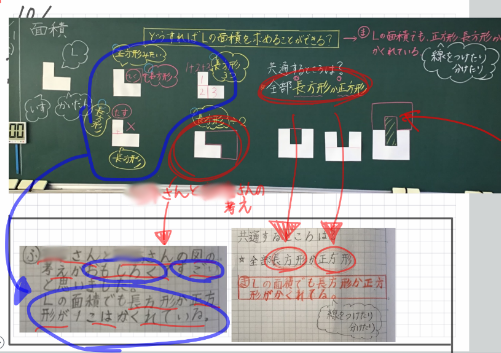 面積
どうすればLの面積を求めることができる?
まLの面積でも、正方形・長方形が
かくれている
線をつけたり
分けたり
L
いす
かいだん
正方形みたい
長方形
たす
長方形
共通するところは?
全部長方形か正方形
さんと さんの
考え
ふ さんと さんの図の
考えがおもしろくすごい
と思いました。
Lの面積でも長方形か正方
形が1こはかくれている。
共通するところは?
☆全部長方形か正方形
まLの面積でも長方形か正方
形がかくれてる。
線をつけたり
分けたり